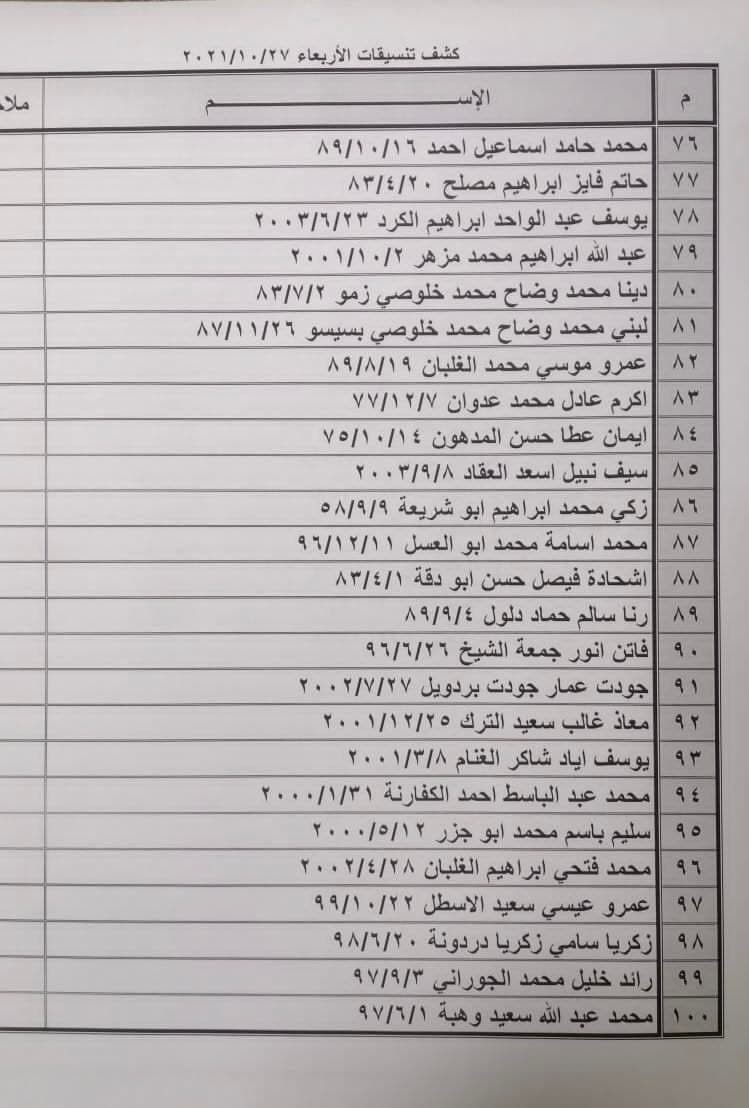 كشف تنسيقات الأربعاء ٢٠٢١/١٠/٢٧
م الإســـــــــــــــــــــــــم ملاح
٧٦ محمد حامد اسماعيل احمد ٨٩/١٠/١٦
٧٧ حاتم فايز ابراهيم مصلح ٨٣/٤/٢٠
٧٨ يوسف عبد الواحد ابراهيم الكرد ٢٠٠٣/٦/٢٣
٧٩ عبد الله ابراهيم محمد مزهر ٢٠٠١/١٠/٢
٨٠ دينا محمد وضاح محمد خلوصي زمو ٨٣/٧/٢
٨١ لبني محمد وضاح محمد خلوصي بسيسو ٨٧/١١/٢٦
٨٢ عمرو موسي محمد الغلبان ٨٩/٨/١٩
٨٣ اكرم عادل محمد عدوان ٧٧/١٢/٧
٨٤ ايمان عطا حسن المدهون ٧٥/١٠/١٤
٨٥ سيف نبيل اسعد العقاد ٢٠٠٣/٩/٨
٨٦ زكي محمد ابراهيم ابو شريعة ٥٨/٩/٩
٨٧ محمد اسامة محمد ابو العسل ٩٦/١٢/١١
٨٨ اشحادة فيصل حسن ابو دقة ٨٣/٤/١
٨٩ رنا سالم حماد دلول ٨٩/٩/٤
٩٠ فاتن انور جمعة الشيخ ٩٦/٦/٢٦
٩١ جودت عمار جودت بردويل ٢٠٠٢/٧/٢٧
٩٢ معاذ غالب سعيد الترك ٢٠٠١/١٢/٢٥
٩٣ يوسف اياد شاكر الغنام ٢٠٠١/٣/٨
٩٤ محمد عبد الباسط احمد الكفارنة ٢٠٠٠/١/٣١
٩٥ سليم باسم محمد ابو جزر ٢٠٠٠/٥/١٢
٩٦ محمد فتحي ابراهيم الغلبان ٢٠٠٢/٤/٢٨
٩٧ عمرو عيسي سعيد الاسطل ٩٩/١٠/٢٢
٩٨ زكريا سامي زكريا دردونة ٩٨/٦/٢٠
٩٩ رائد خليل محمد الجوراني ٩٧/٩/٣
١٠٠ محمد عبد الله سعيد وهبة ٩٧/٦/١